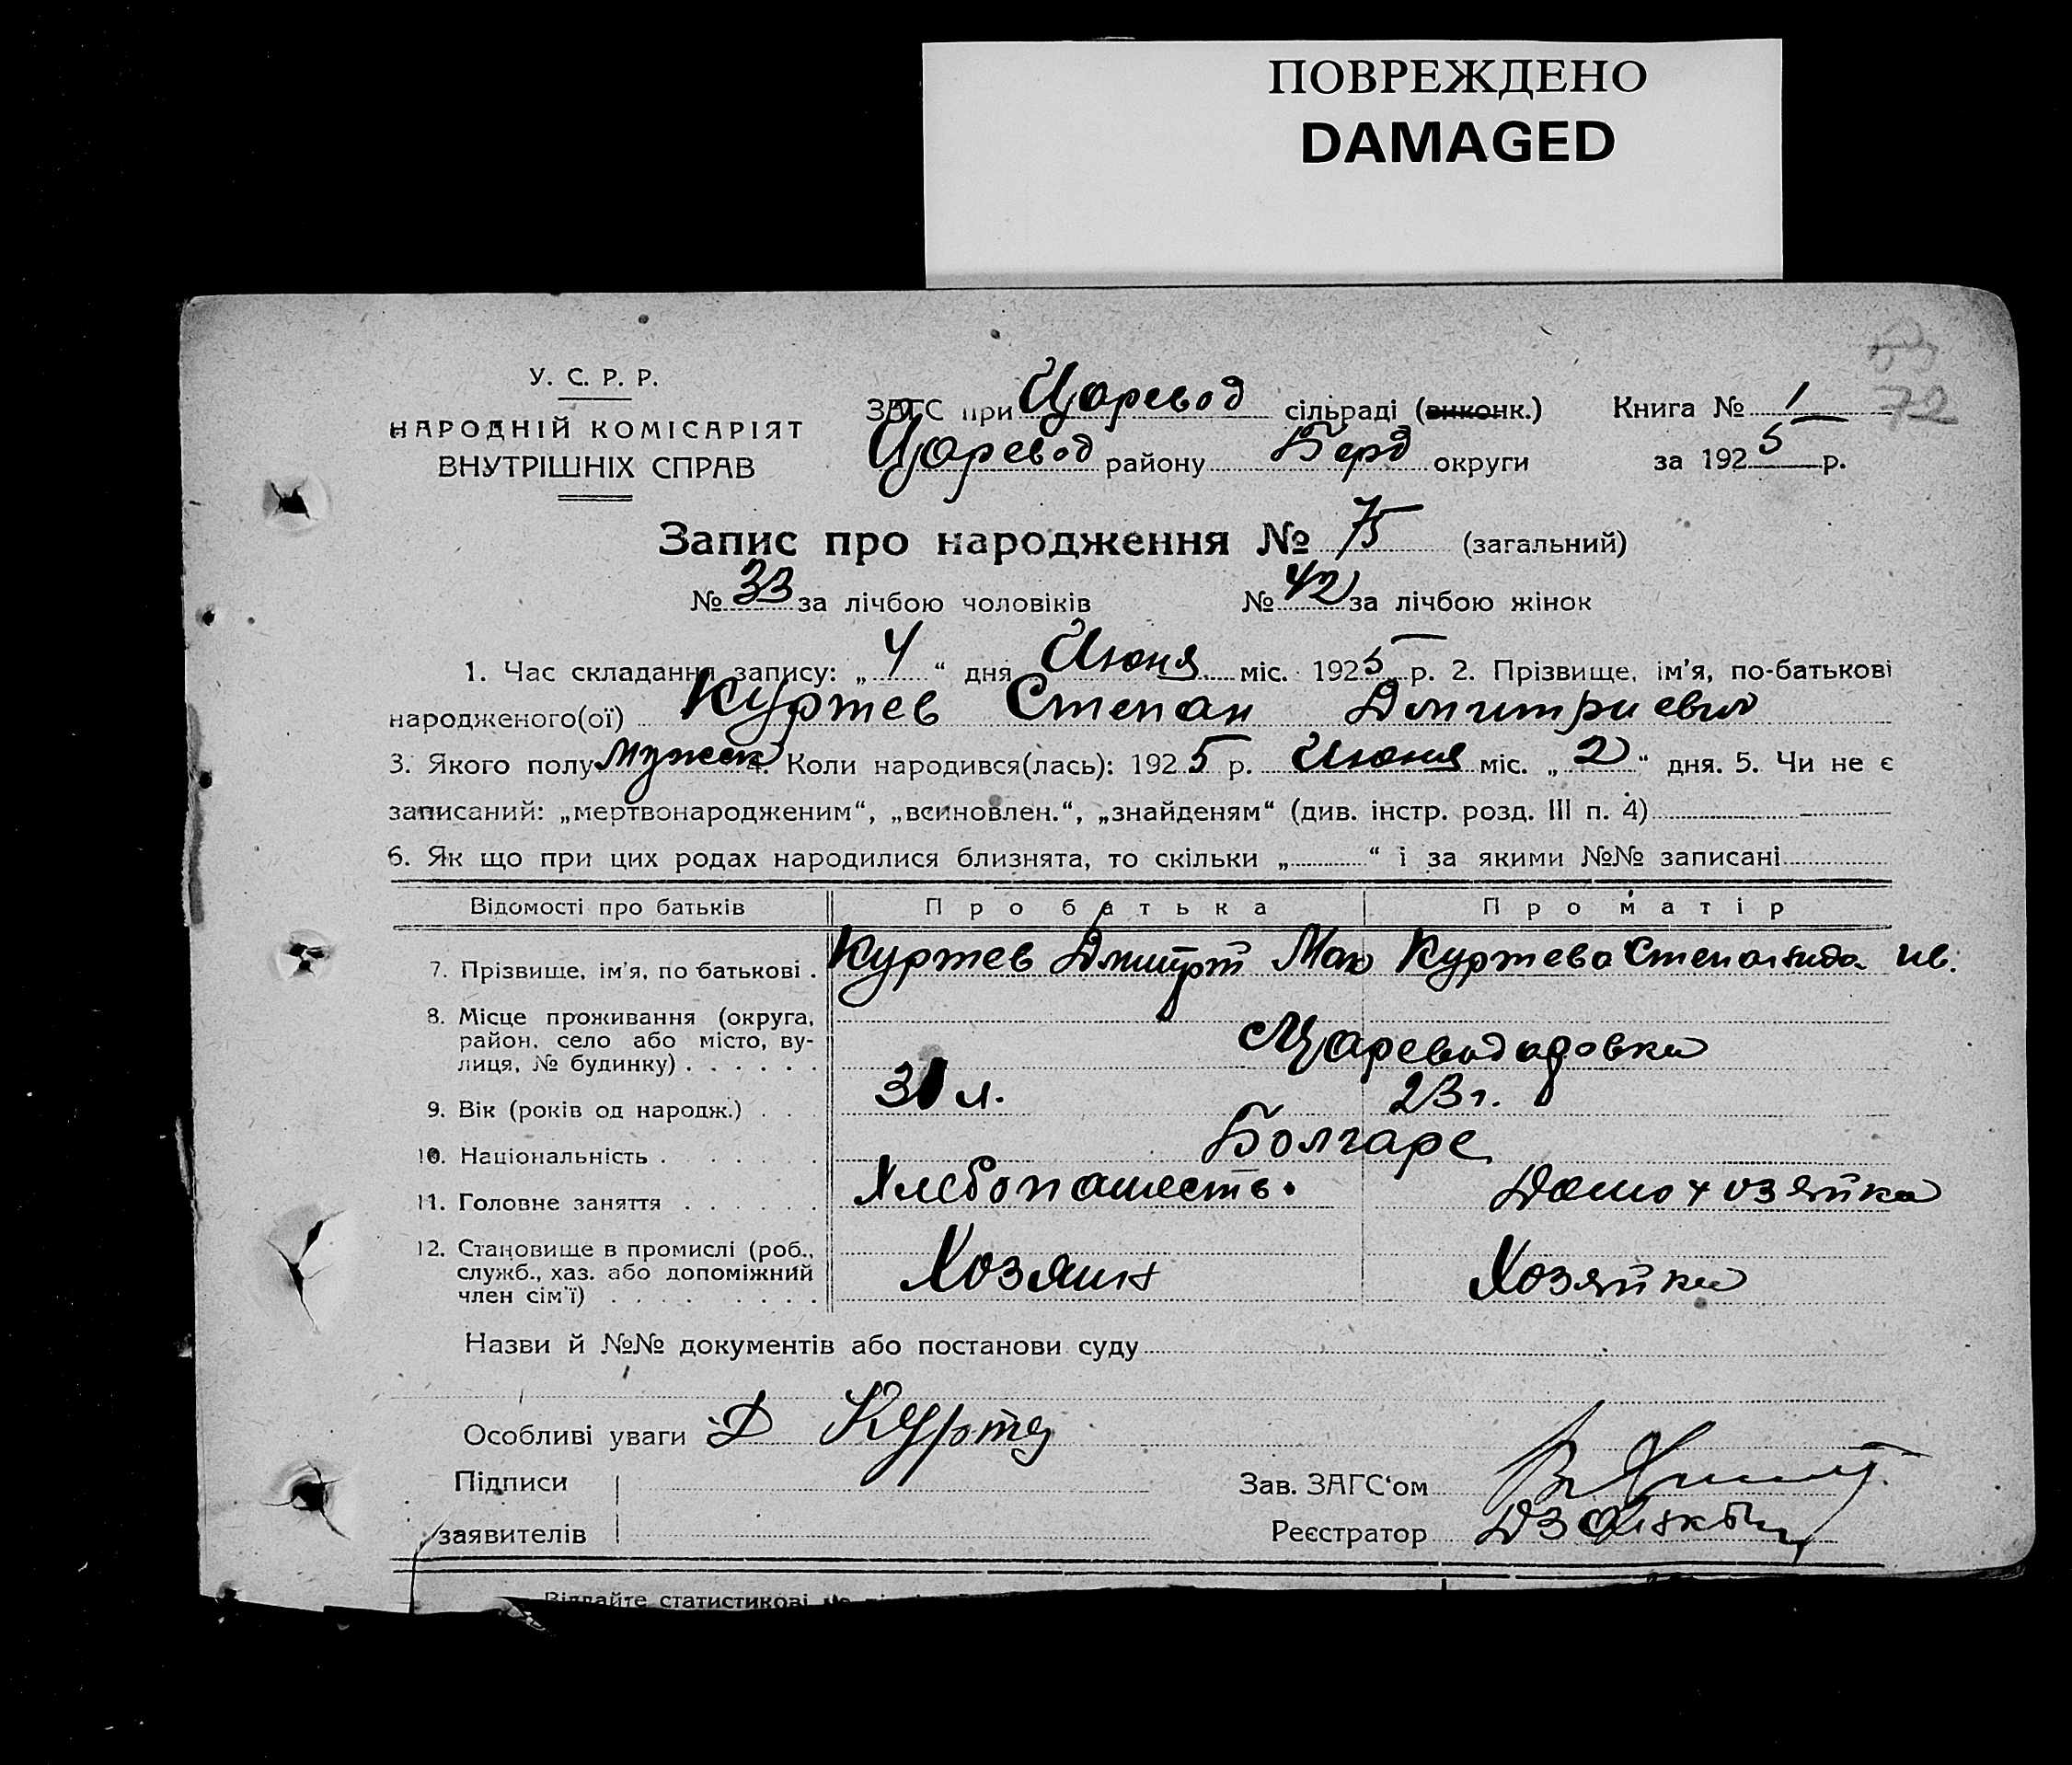 ПОВРЕЖДЕНО
DAMAGED
72
У. С. Р. Р.
НАРОДНІЙ КОМІСАРІЯТ
ВНУТРІШНІХ СПРАВ
ЗАГС при Царевод сільраді (виконк.) Книга № 1
Царевод району Берд округи за 1925 р.
Запис про народження № 75 (загальний)
№ 33 за лічбою чоловіків № 42 за лічбою жінок
1. Час складання запису: „ 4 “ дня Июня міс. 1925 р. 2. Прізвище, ім’я, по-батькові
народженого(ої) Куртев Степан Дмитриевич
3. Якого полу Мужск 4. Коли народився(лась): 1925 р. Июня міс. „ 2 “ дня. 5. Чи не є
записаний: „мертвонародженим“, „всиновлен.“, „знайденям“ (див. інстр. розд. III п. 4)
6. Як що при цих родах народилися близнята, то скільки „ “ і за якими №№ записані
Відомості про батьків Про батька Про матір
7. Прізвище, ім’я, по батькові . Куртев Дмитрий Куртева Степанида Ив.
8. Місце проживання (округа,
район, село або місто, ву-
лиця, № будинку) . . . . . . Царевод
9. Вік (років од народж.) . . . 31 л. 23 г.
10. Національність . . . . . . . Болгаре
11. Головне заняття . . . . . . Хлебопашеств. Домохозяйка
12. Становище в промислі (роб.,
служб., хаз. або допоміжний
член сім’ї) . . . . . . . . . Хозяин Хозяйка
Назви й №№ документів або постанови суду
Особливі уваги Д Курте
Підписи
заявителів
Зав. ЗАГС‘ом
Реєстратор
Віддайте статистикові